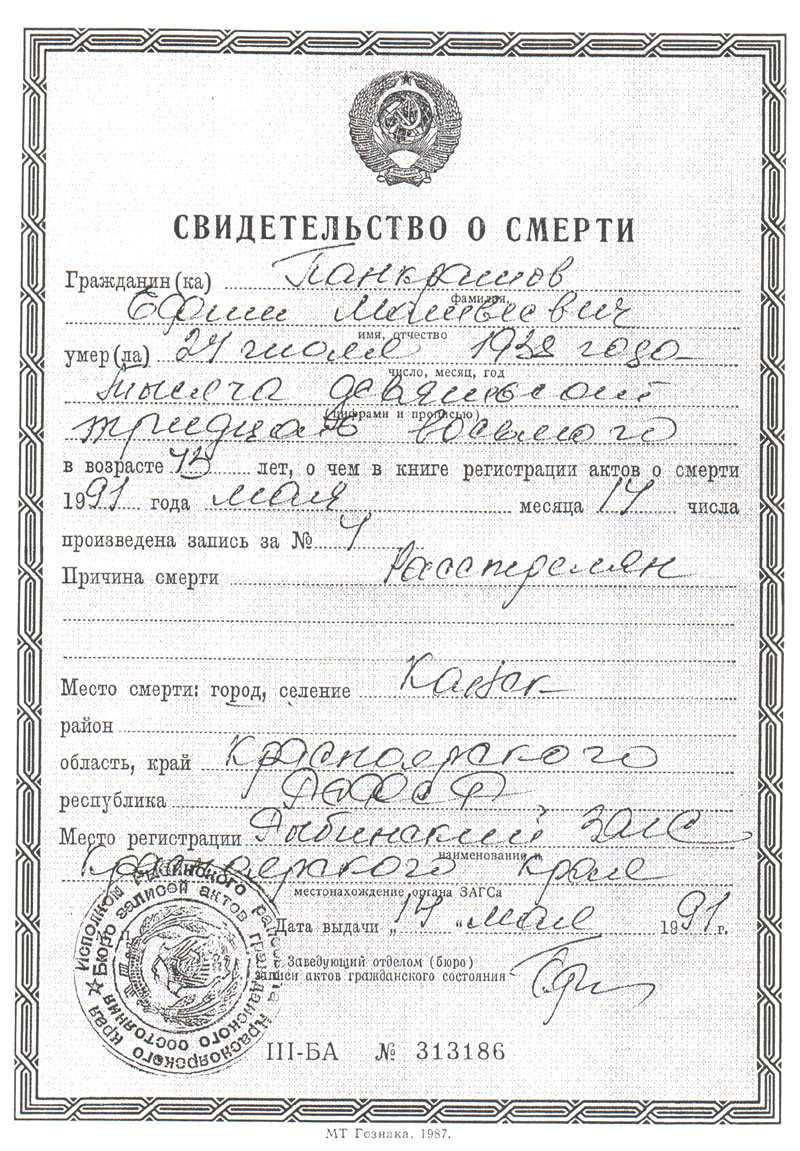 СВИДЕТЕЛЬСТВО О СМЕРТИ
Гражданин (ка) Панкратов
фамилия,
Ефим Матвеевич
имя, отчество
умер (ла) 24 июля 1938 года
число, месяц, год
тысяча девятьсот
(цифрами и прописью)
тридцать восьмого
в возрасте лет, о чем в книге регистрации актов о смерти
1991 года мая месяца 14 числа
произведена запись за № 4
Причина смерти Расстрелян
Место смерти: город, селение Канск
район
область, край Красноярского
республика РСФСР
Место регистрации Рыбинский ЗАГС
наименование и
Красноярского края
местонахождение органа ЗАГСа
Дата выдачи „14 “ мая 1991 г.
Заведующий отделом (бюро)
записи актов гражданского состояния
Исполком Рыбинского района Красноярского края
Бюро записей актов гражданского состояния
III-БА № 313186
МТ Гознака. 1987.